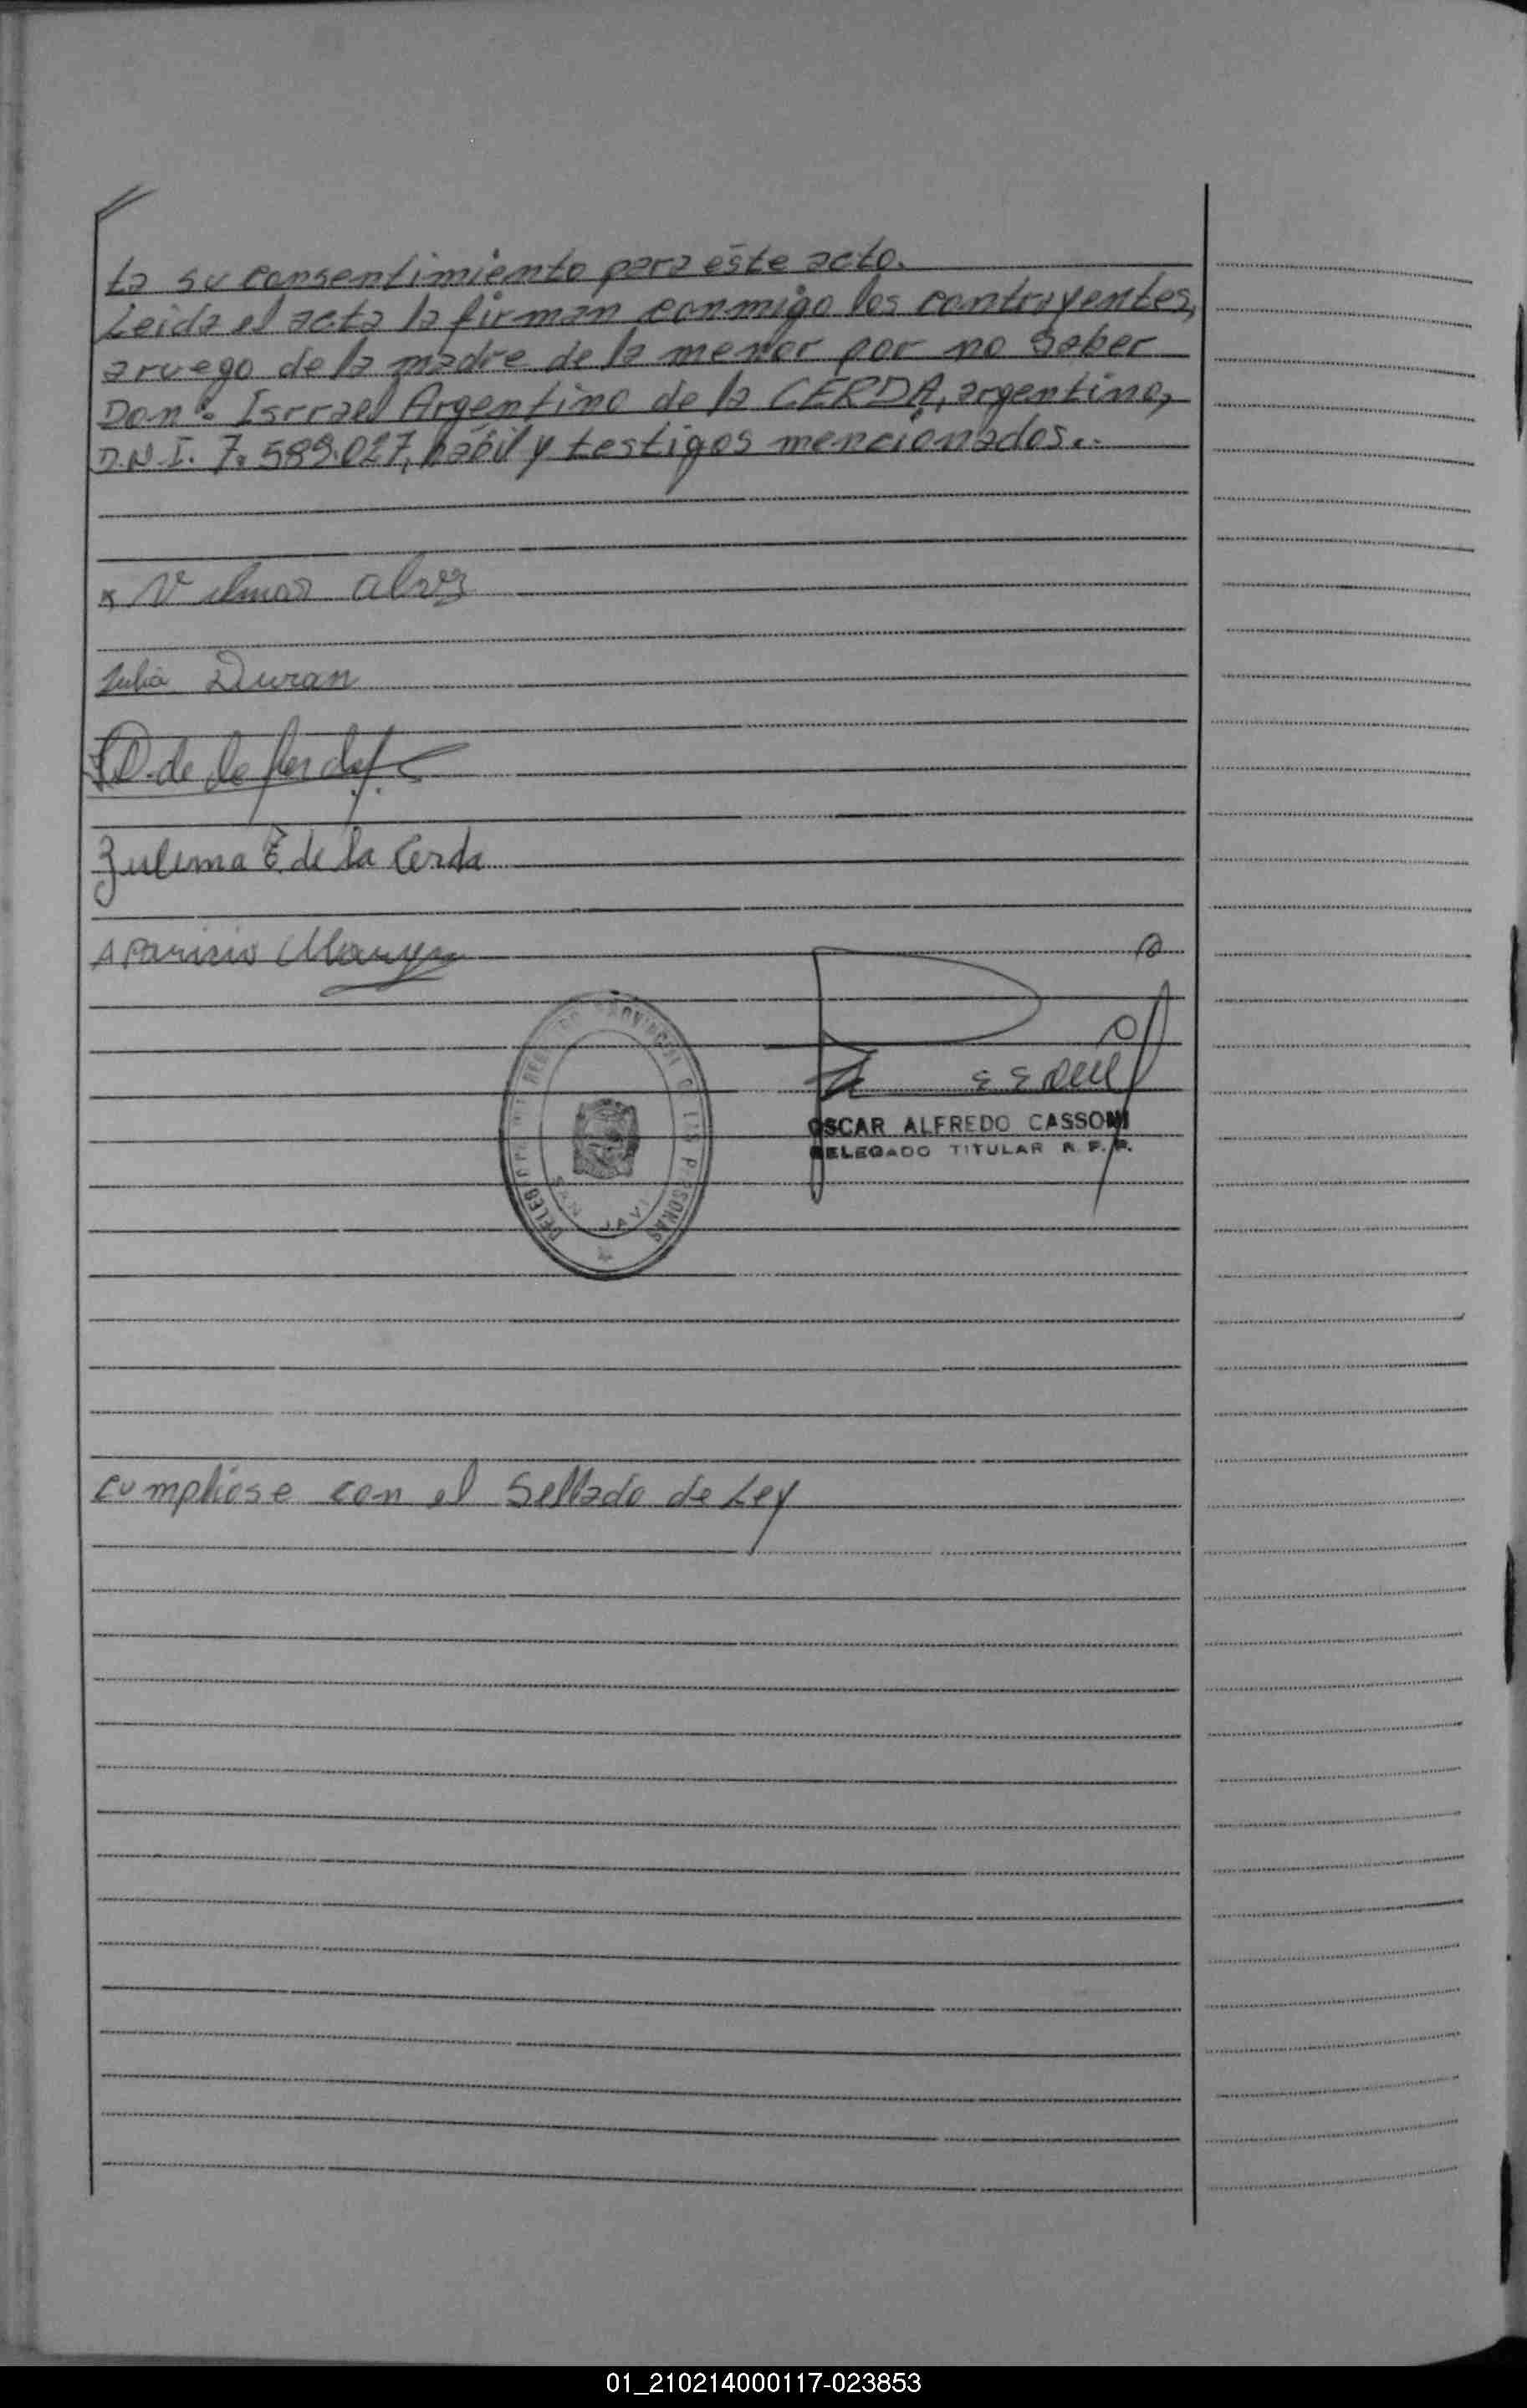 ta su consentimiento para este acto.
Leida el acta la firman conmigo los contrayentes,
a ruego de la madre de la menor por no Saber
Don: Isrrael Argentino de la CERDA, argentino,
D.N.I. 7.589.027, hábil y testigos mencionados.-
x Vilmar alvez
Julia Duran
de la Cerda
Zulema E. de la Cerda
Aparisio
OSCAR ALFREDO CASSONI
DELEGADO TITULAR R. P. P.
DELEGACION REGISTRO PROVINCIAL DE LAS PERSONAS
SAN JAVIER
cumpliose con el Sellado de Ley
01_210214000117-023853